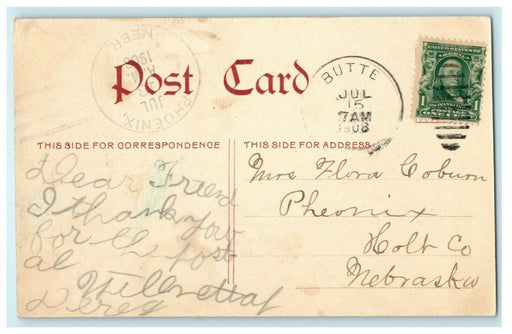 PHOENIX,
NEBR.
JUL
A.M.
Post Card
BUTTE
JUL
15
7AM
1908
UNITED STATES OF AMERICA
FRANKLIN
1 ONE CENT 1
THIS SIDE FOR CORRESPONDENCE
THIS SIDE FOR ADDRESS
Dear Friend
I thank you
for the post
al
Mrs Flora Coburn
Pheonix
Holt Co
Nebraska